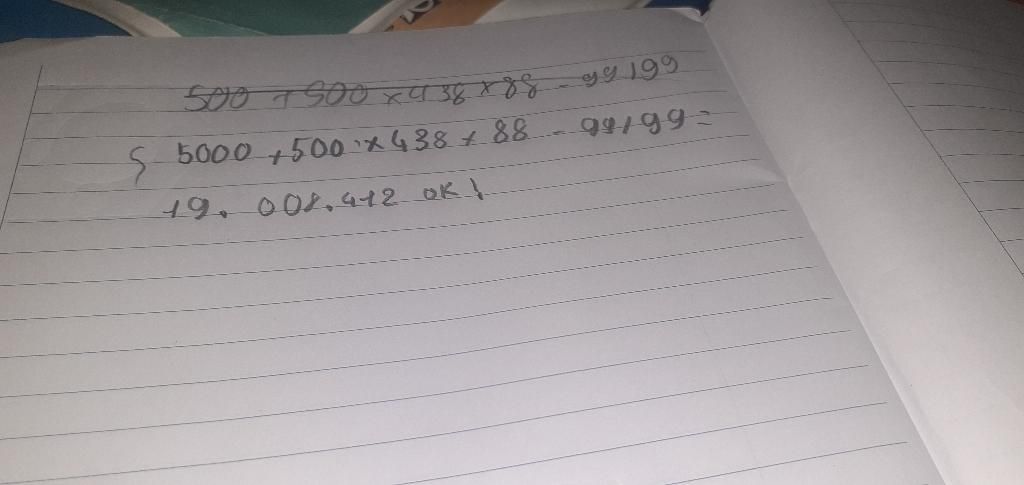 500 + 500 x 438 x 88 - 99199
5000 + 500 x 438 + 88 - 99199 =
19.008.412 OK!